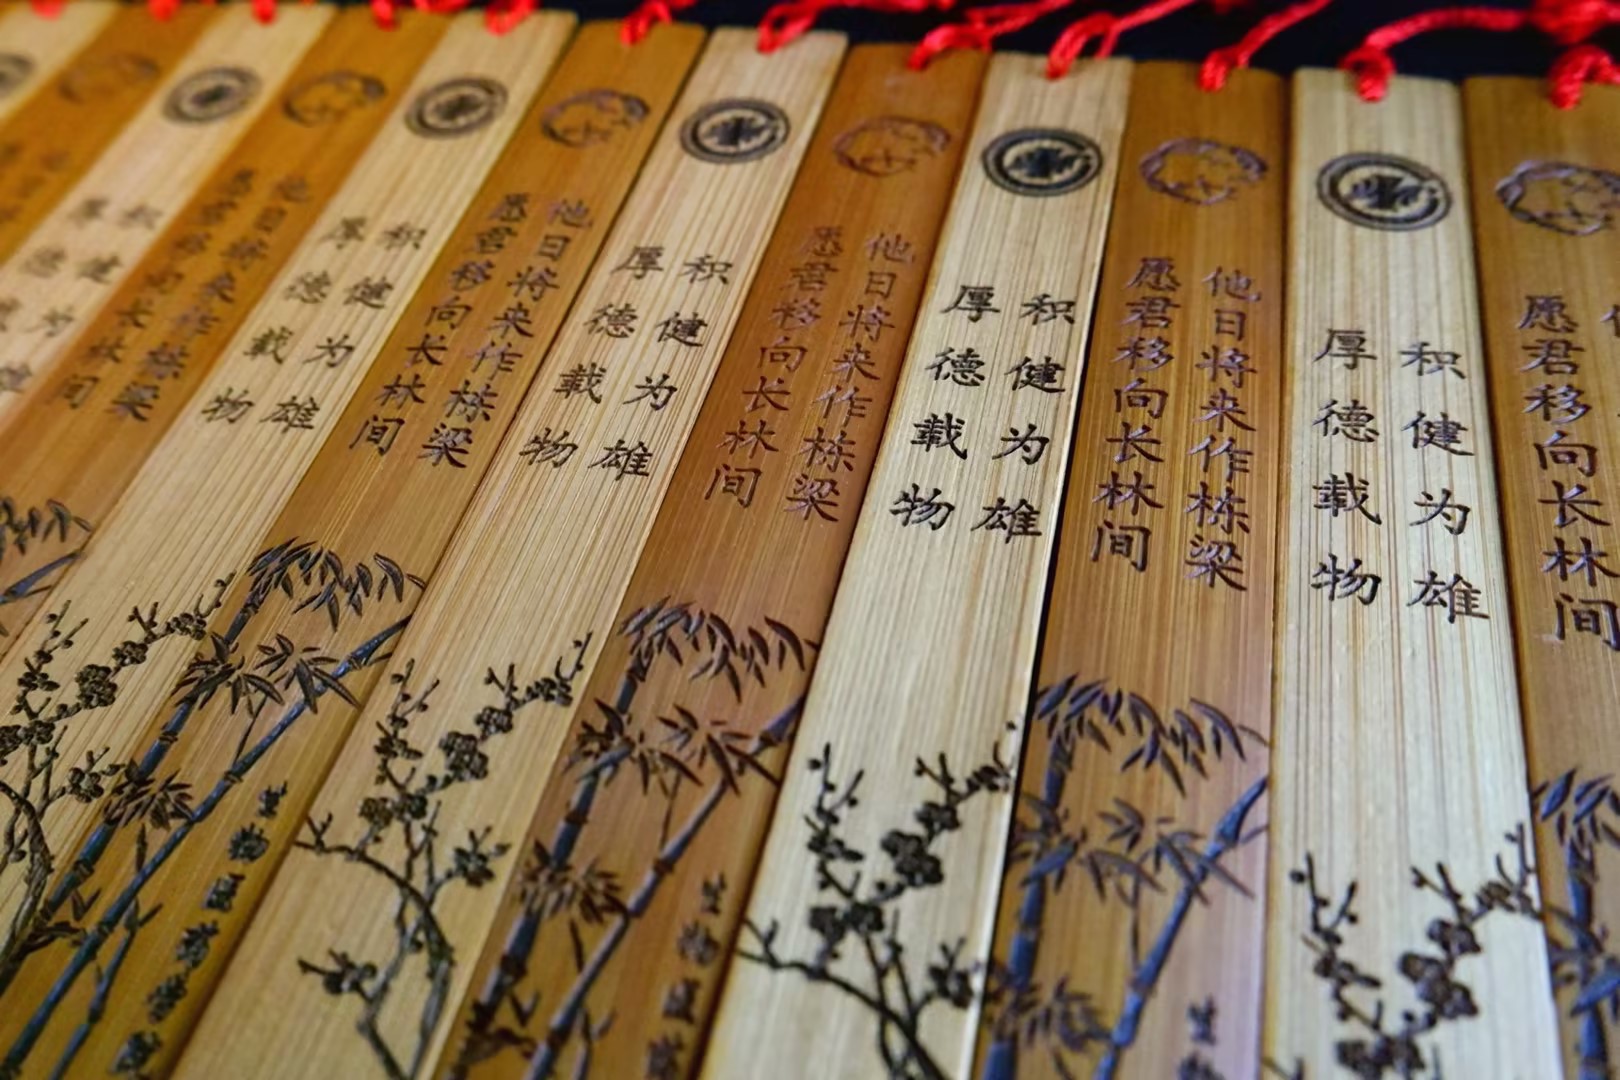 厚德载
积健为雄
愿君移向长林间
他日将来作栋梁
厚德载物
积健为雄
愿君移向长林间
他日将来作栋梁
厚德载物
积健为雄
愿君移向长林间
他日将来作栋梁
厚德载物
积健为雄
愿君移向长林间
他日将来作栋梁
厚德载物
积健为雄
愿君移向长林间